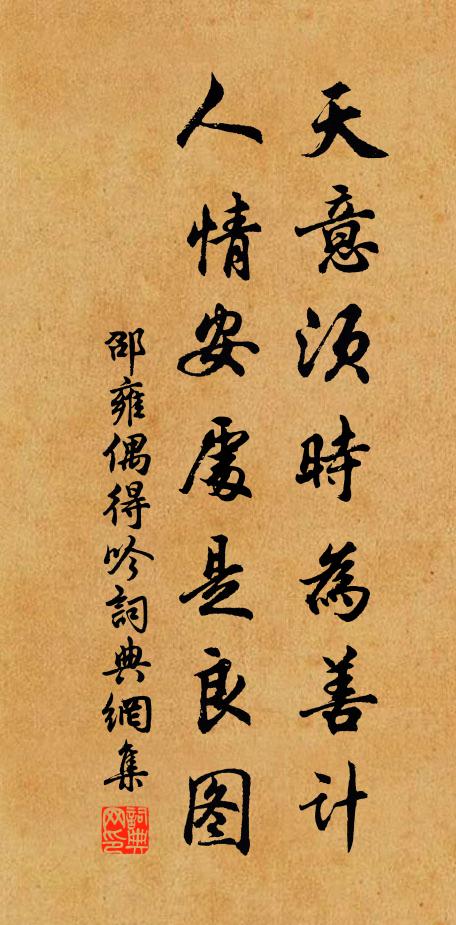 天意須時為善計
人情安處是良图
邵雍偶得吟詞典網集
詞典网印